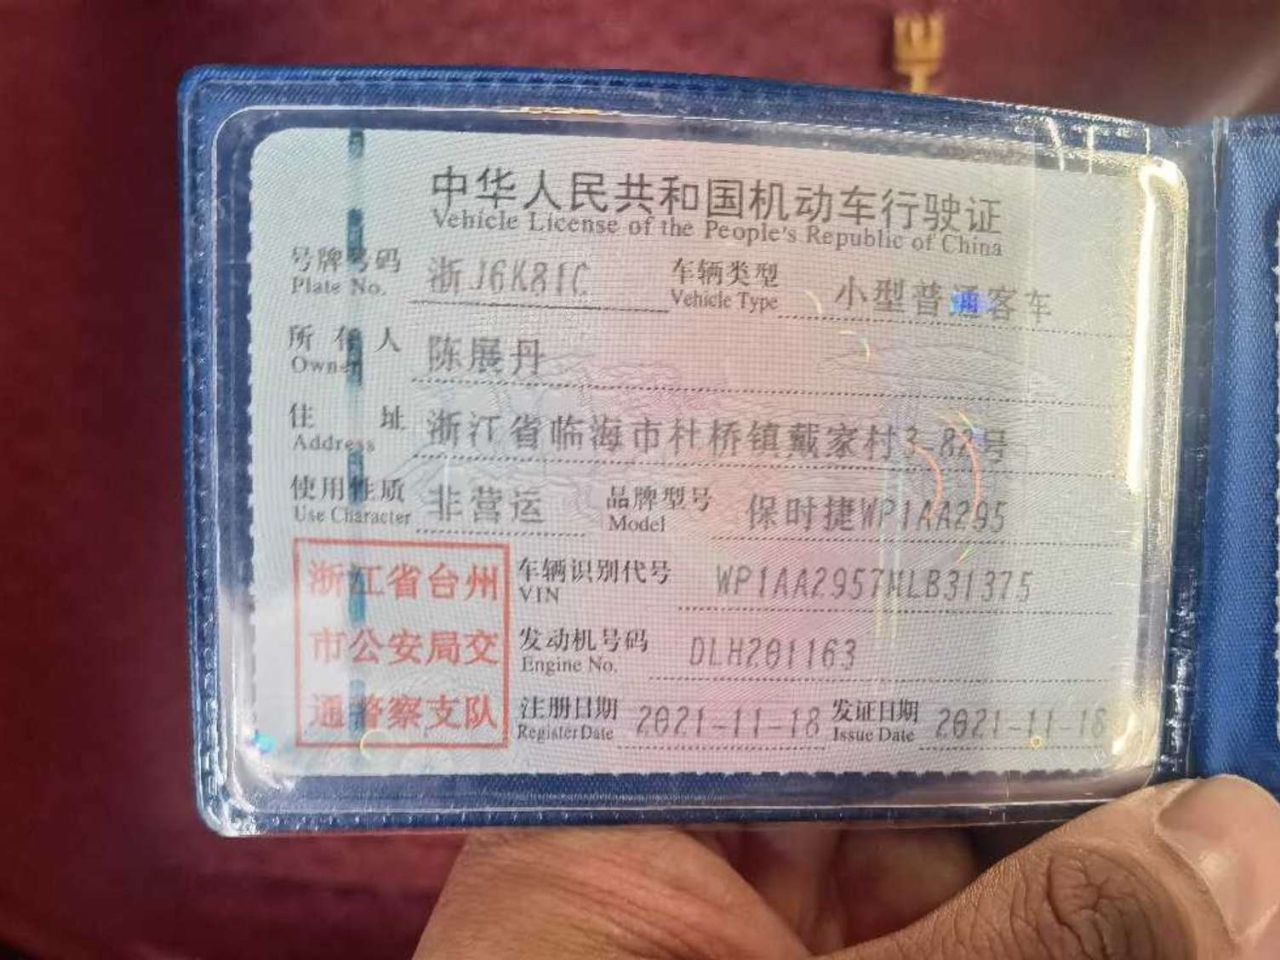 中华人民共和国机动车行驶证
Vehicle License of the People's Republic of China
号牌号码 浙J6K81C 车辆类型 小型普通客车
Plate No. Vehicle Type
所有人 陈展丹
Owner
住址 浙江省临海市杜桥镇戴家村3-82号
Address
使用性质 非营运 品牌型号 保时捷WP1AA295
Use Character Model
浙江省台州
市公安局交
通警察支队
车辆识别代号 WP1AA2957MLB31375
VIN
发动机号码 DLH201163
Engine No.
注册日期 2021-11-18 发证日期 2021-11-18
Register Date Issue Date